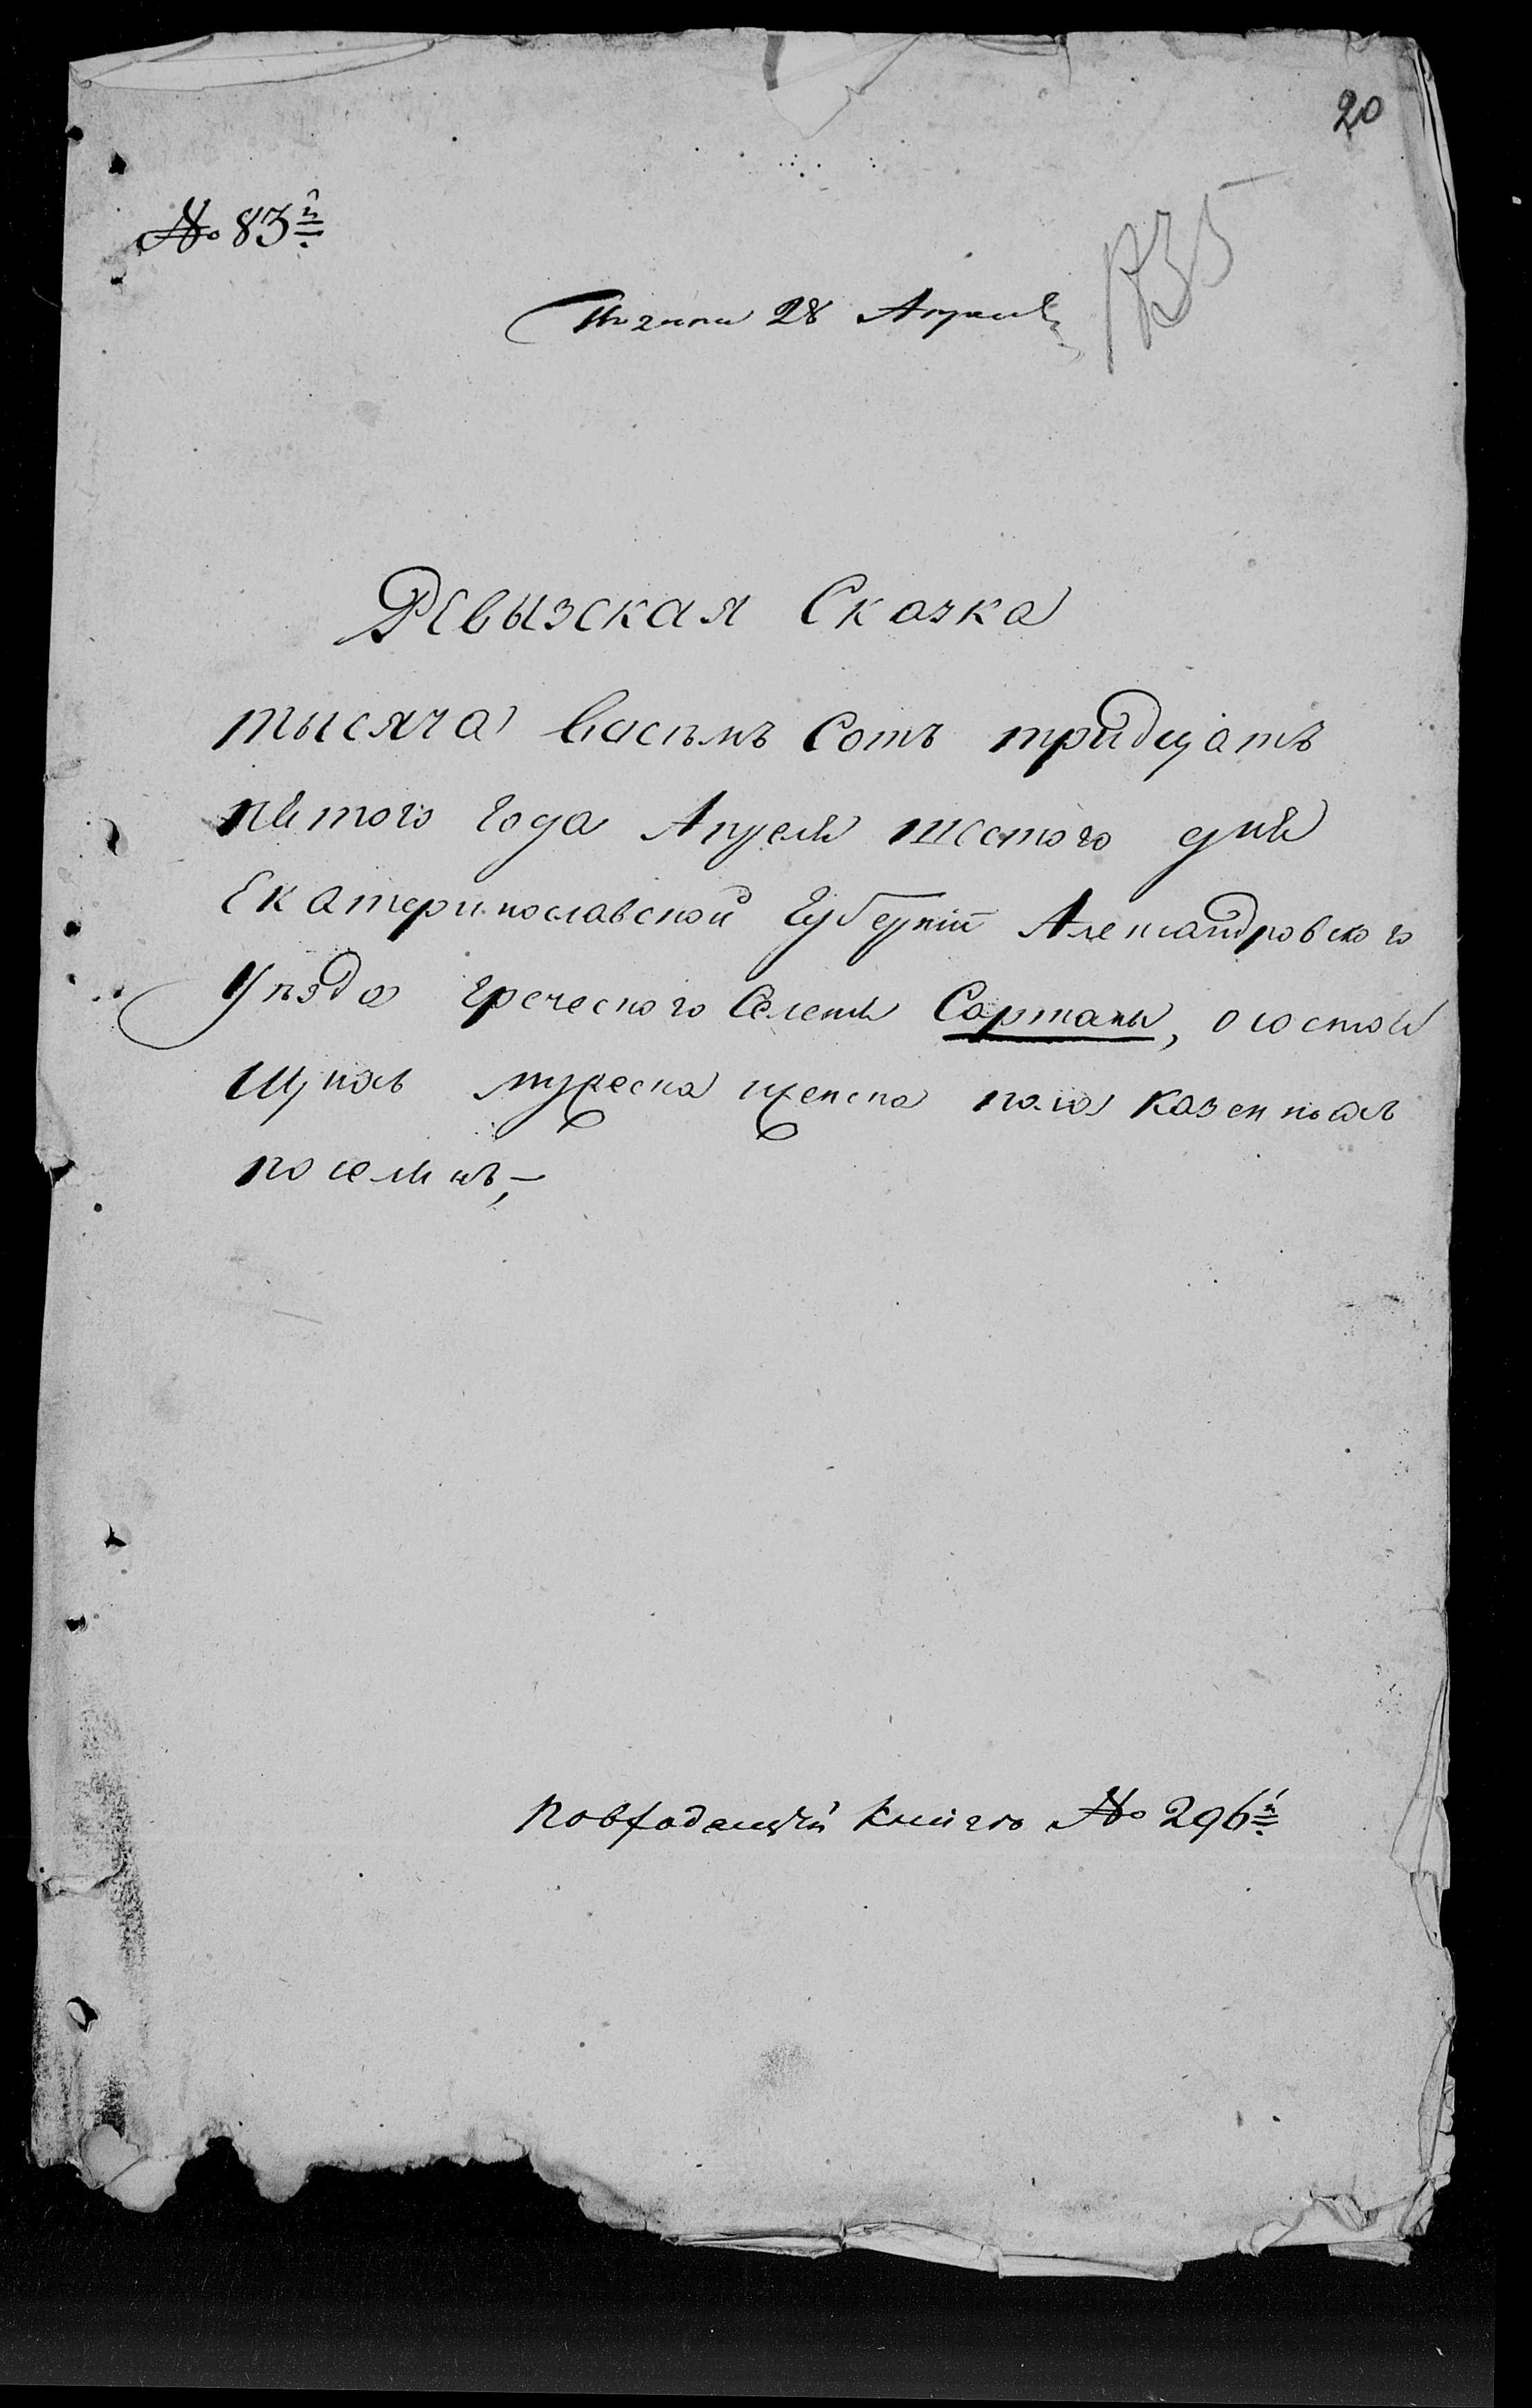 20
№ 83й
1835
28 Апреля
Ревызская Сказка
тысяча васьмъ Сотъ тридцатъ
пятого года Апреля шестого дня
Екатеринославской Губерніи Александровского
Уъзда греческого Селеня Сартаны, осостоя
щихъ мужеска женска пола казенныхъ
поселянъ,—
Повходящей книге № 296й